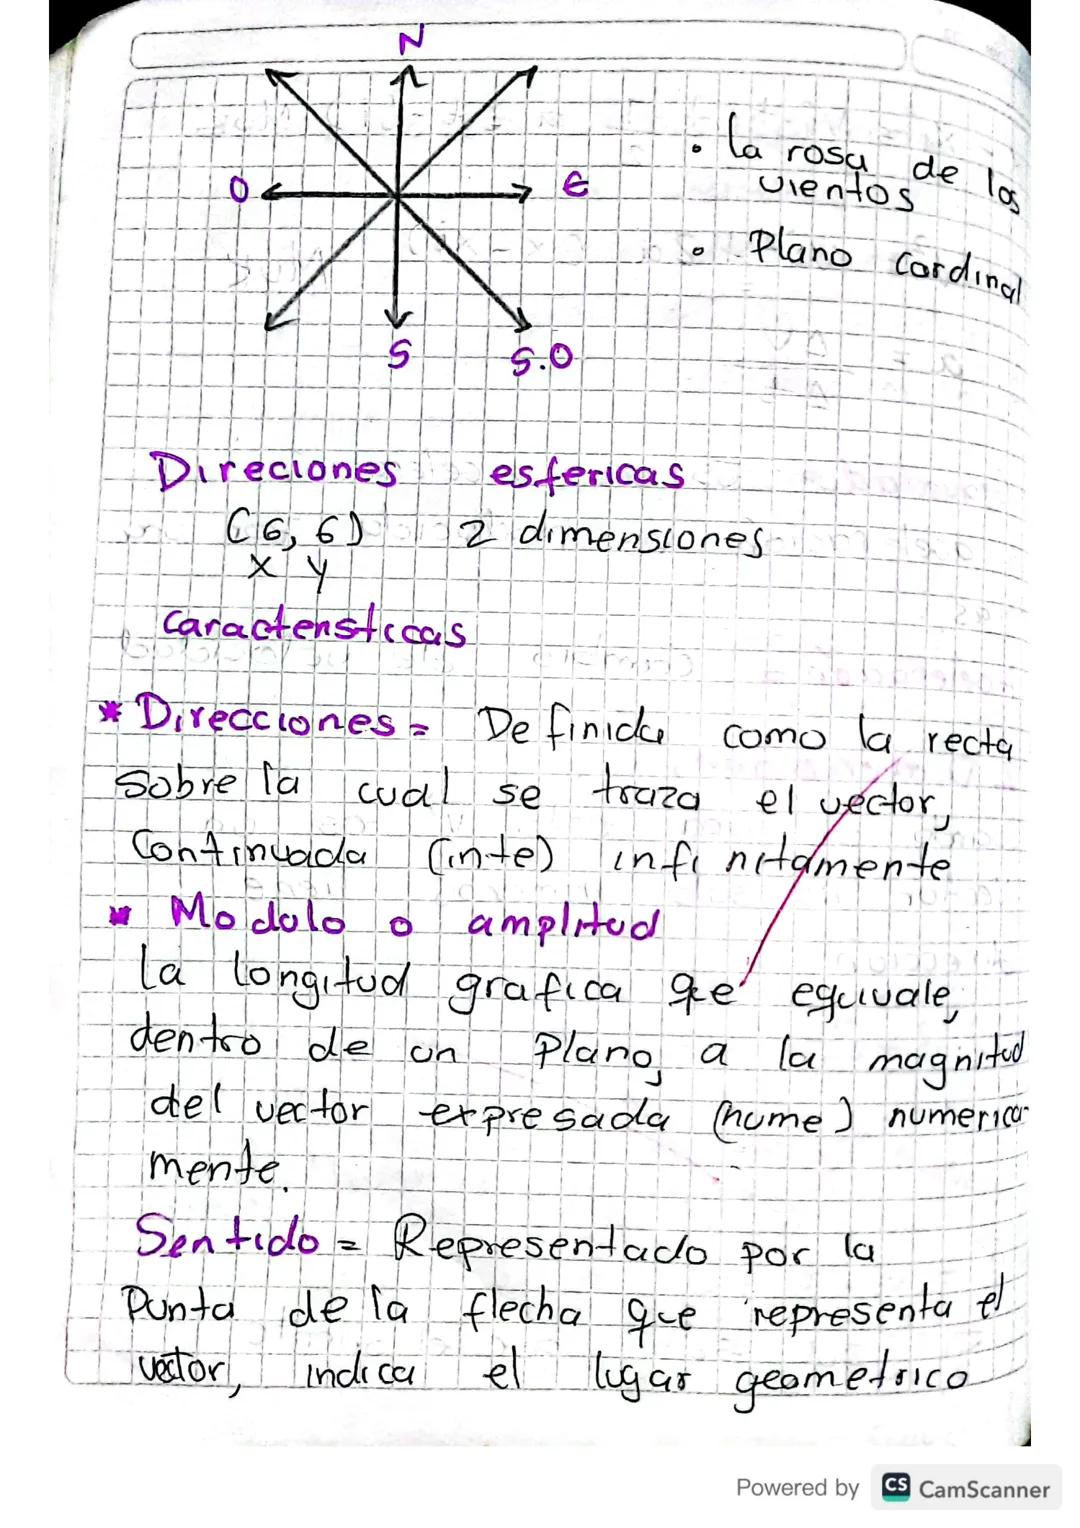 N
• la rosa de los
vientos
O E
• Plano Cordinal
S S.O
Direciones esfericas
(6, 6) 2 dimensiones
x y
Caracteristicas
* Direcciones = Definida como la recta
sobre la cual se traza el vector,
Continuada (inte) infinitamente
* Modulo o amplitud
la longitud grafica que equivale,
dentro de un Plano, a la magnitud
del vector expresada (nume) numerica-
mente.
Sentido = Representado por la
Punta de la flecha que representa el
vector, indica el lugar geometrico
Powered by CS CamScanner